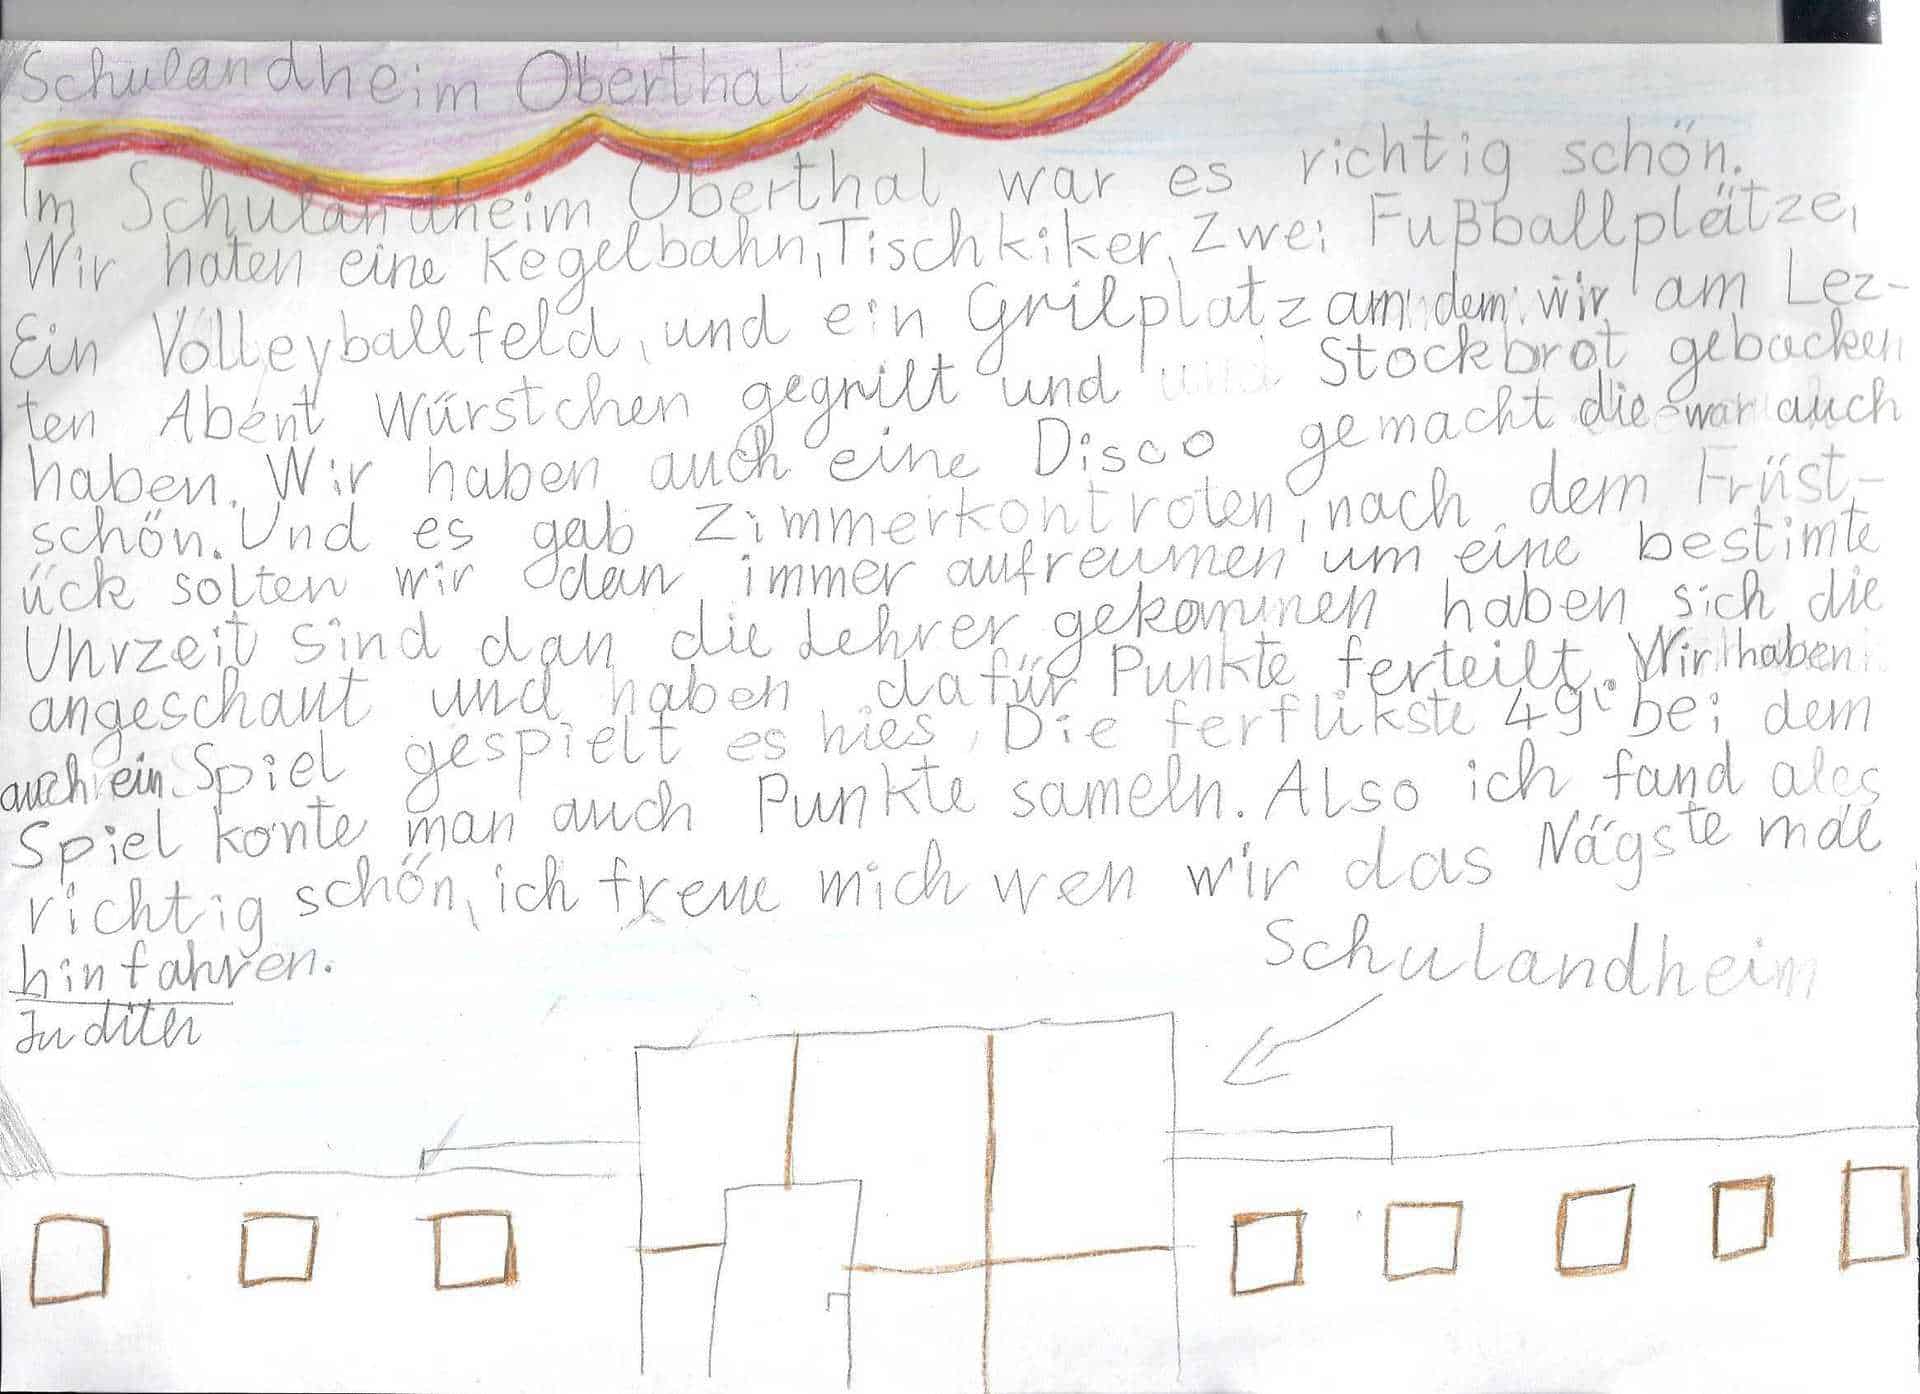 Schulandheim Oberthal
Im Schulandheim Oberthal war es richtig schön.
Wir haten eine Kegelbahn, Tischkiker, Zwei Fußballplätze,
Ein Volleyballfeld, und ein Grilplatz am dem wir am Lez-
ten Abent Würstchen gegrilt und Stockbrot gebacken
haben. Wir haben auch eine Disco gemacht die war auch
schön. Und es gab Zimmerkontrolen, nach dem Früst-
ück solten wir dan immer aufreumen um eine bestimte
Uhrzeit sind dan die Lehrer gekommen haben sich die
angeschaut und haben dafür Punkte ferteilt. Wir haben
auch ein Spiel gespielt es hies, Die ferflikste 49" bei dem
Spiel konte man auch Punkte sameln. Also ich fand ales
richtig schön, ich freue mich wen wir das Nägste mal
hinfahren.
Judith
Schulandheim